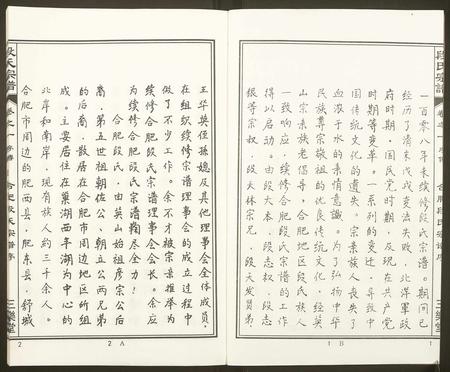 段氏宗譜
卷之一
序譜
合肥段氏宗譜序
三樂堂
一百零八年未續修段氏宗譜。期间已
经历了清末戊戌变法失败，北洋軍政
府时期，国民党时期，及現在共产党
时期等变革。一系列的变迁，导致中
国传统文化的遗失。宗亲族人丧失了
血浓于水的亲情意識。为了弘扬中华
民族尊宗敬祖的优良传统文化，经英
山宗亲族老倡导，合肥地区段氏族人
一致响应，续修合肥段氏宗谱的工作
得以启动。由段大本、段志权、段志
根等宗叔，段大林宗兄，段天发贤弟
1 B
1
王华英侄孙媳及其他理事会全体成员，
在组织续修宗谱理事会的成立过程中
做了不少工作。余不才被宗亲推举为
续修合肥段氏宗谱理事会会长。余应
为续修合肥段氏宗谱鞠尽全力！
合肥段氏，由英山始祖彦宗公后
裔，第五世祖朝佐公、朝立公两兄弟
的后裔，散居在合肥市周边地区所组
成。主要居住在巢湖西半湖为中心的
北岸和南岸，現有族人約三千余人。
合肥市周边的肥西县，肥东县，舒城
段氏宗譜
卷之一
序譜
合肥段氏宗譜序
三樂堂
2
2 A